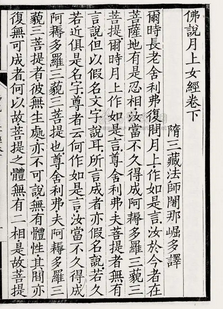 佛說月上女經卷下
隋三藏法師闍那崛多譯
爾時長老舍利弗復問月上作如是言汝於今者在
菩薩地有是忍相汝當不久得成阿耨多羅三藐三
菩提爾時月上作如是言尊舍利弗夫菩提者無有
言說但以假名文字說耳所言成者亦假名說若久
若近俱是名字尊者云何作如是言汝當不久得成
阿耨多羅三藐三菩提也尊舍利弗夫阿耨多羅三
藐三菩提者彼無生處亦不可說無有體性其間亦
復無可成者何以故菩提之體無有二相是故菩提